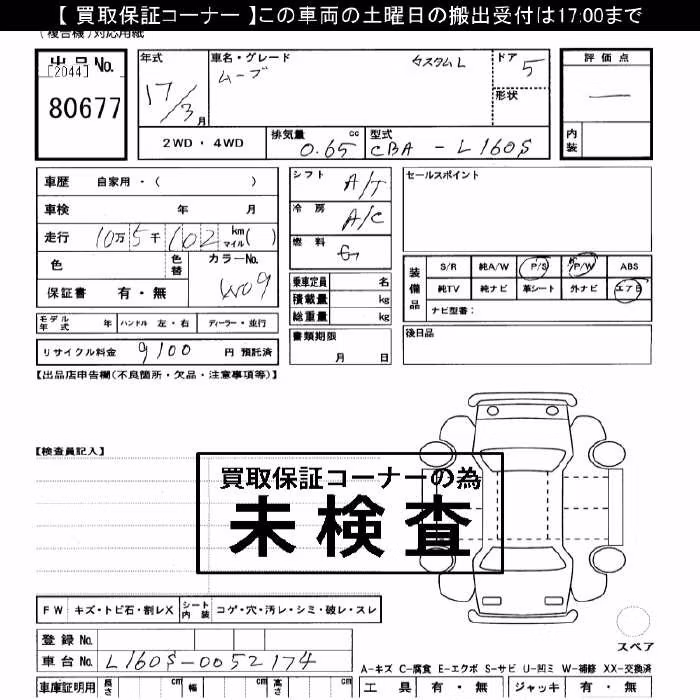 【 買取保証コーナー 】この車両の土曜日の搬出受付は17:00まで
(複合機)対応用紙
出品No.
[2044]
80677
年式 17/3 月
車名・グレード
ムーブ カスタムL
ドア 5
形状
評価点
―
内装
2WD・4WD
排気量 0.65 cc
型式 CBA - L160S
車歴 自家用・( )
車検 年 月
走行 10万5千102 km マイル( )
色 色替 カラーNo. W09
保証書 有・無
モデル年式 年 ハンドル 左・右 ディーラー・並行
リサイクル料金 9100 円 預託済
シフト A/T
冷房 A/C
燃料 G
乗車定員 名
積載量 kg
総重量 kg
書類期限
月 日
セールスポイント
装備品
S/R 純A/W P/S P/W ABS
純TV 純ナビ 革シート 外ナビ エアB
ナビ型番:
後日品
【出品店申告欄(不良箇所・欠品・注意事項等)】
【検査員記入】
買取保証コーナーの為
未検査
FW キズ・トビ石・割レX シート内装 コゲ・穴・汚レ・シミ・破レ・スレ
登録No.
車台No. L160S-0052174
車庫証明用 長さ cm 幅 cm 高さ cm
スペア
A-キズ C-腐食 E-エクボ S-サビ U-凹ミ W-補修 XX-交換済
工具 有・無 ジャッキ 有・無